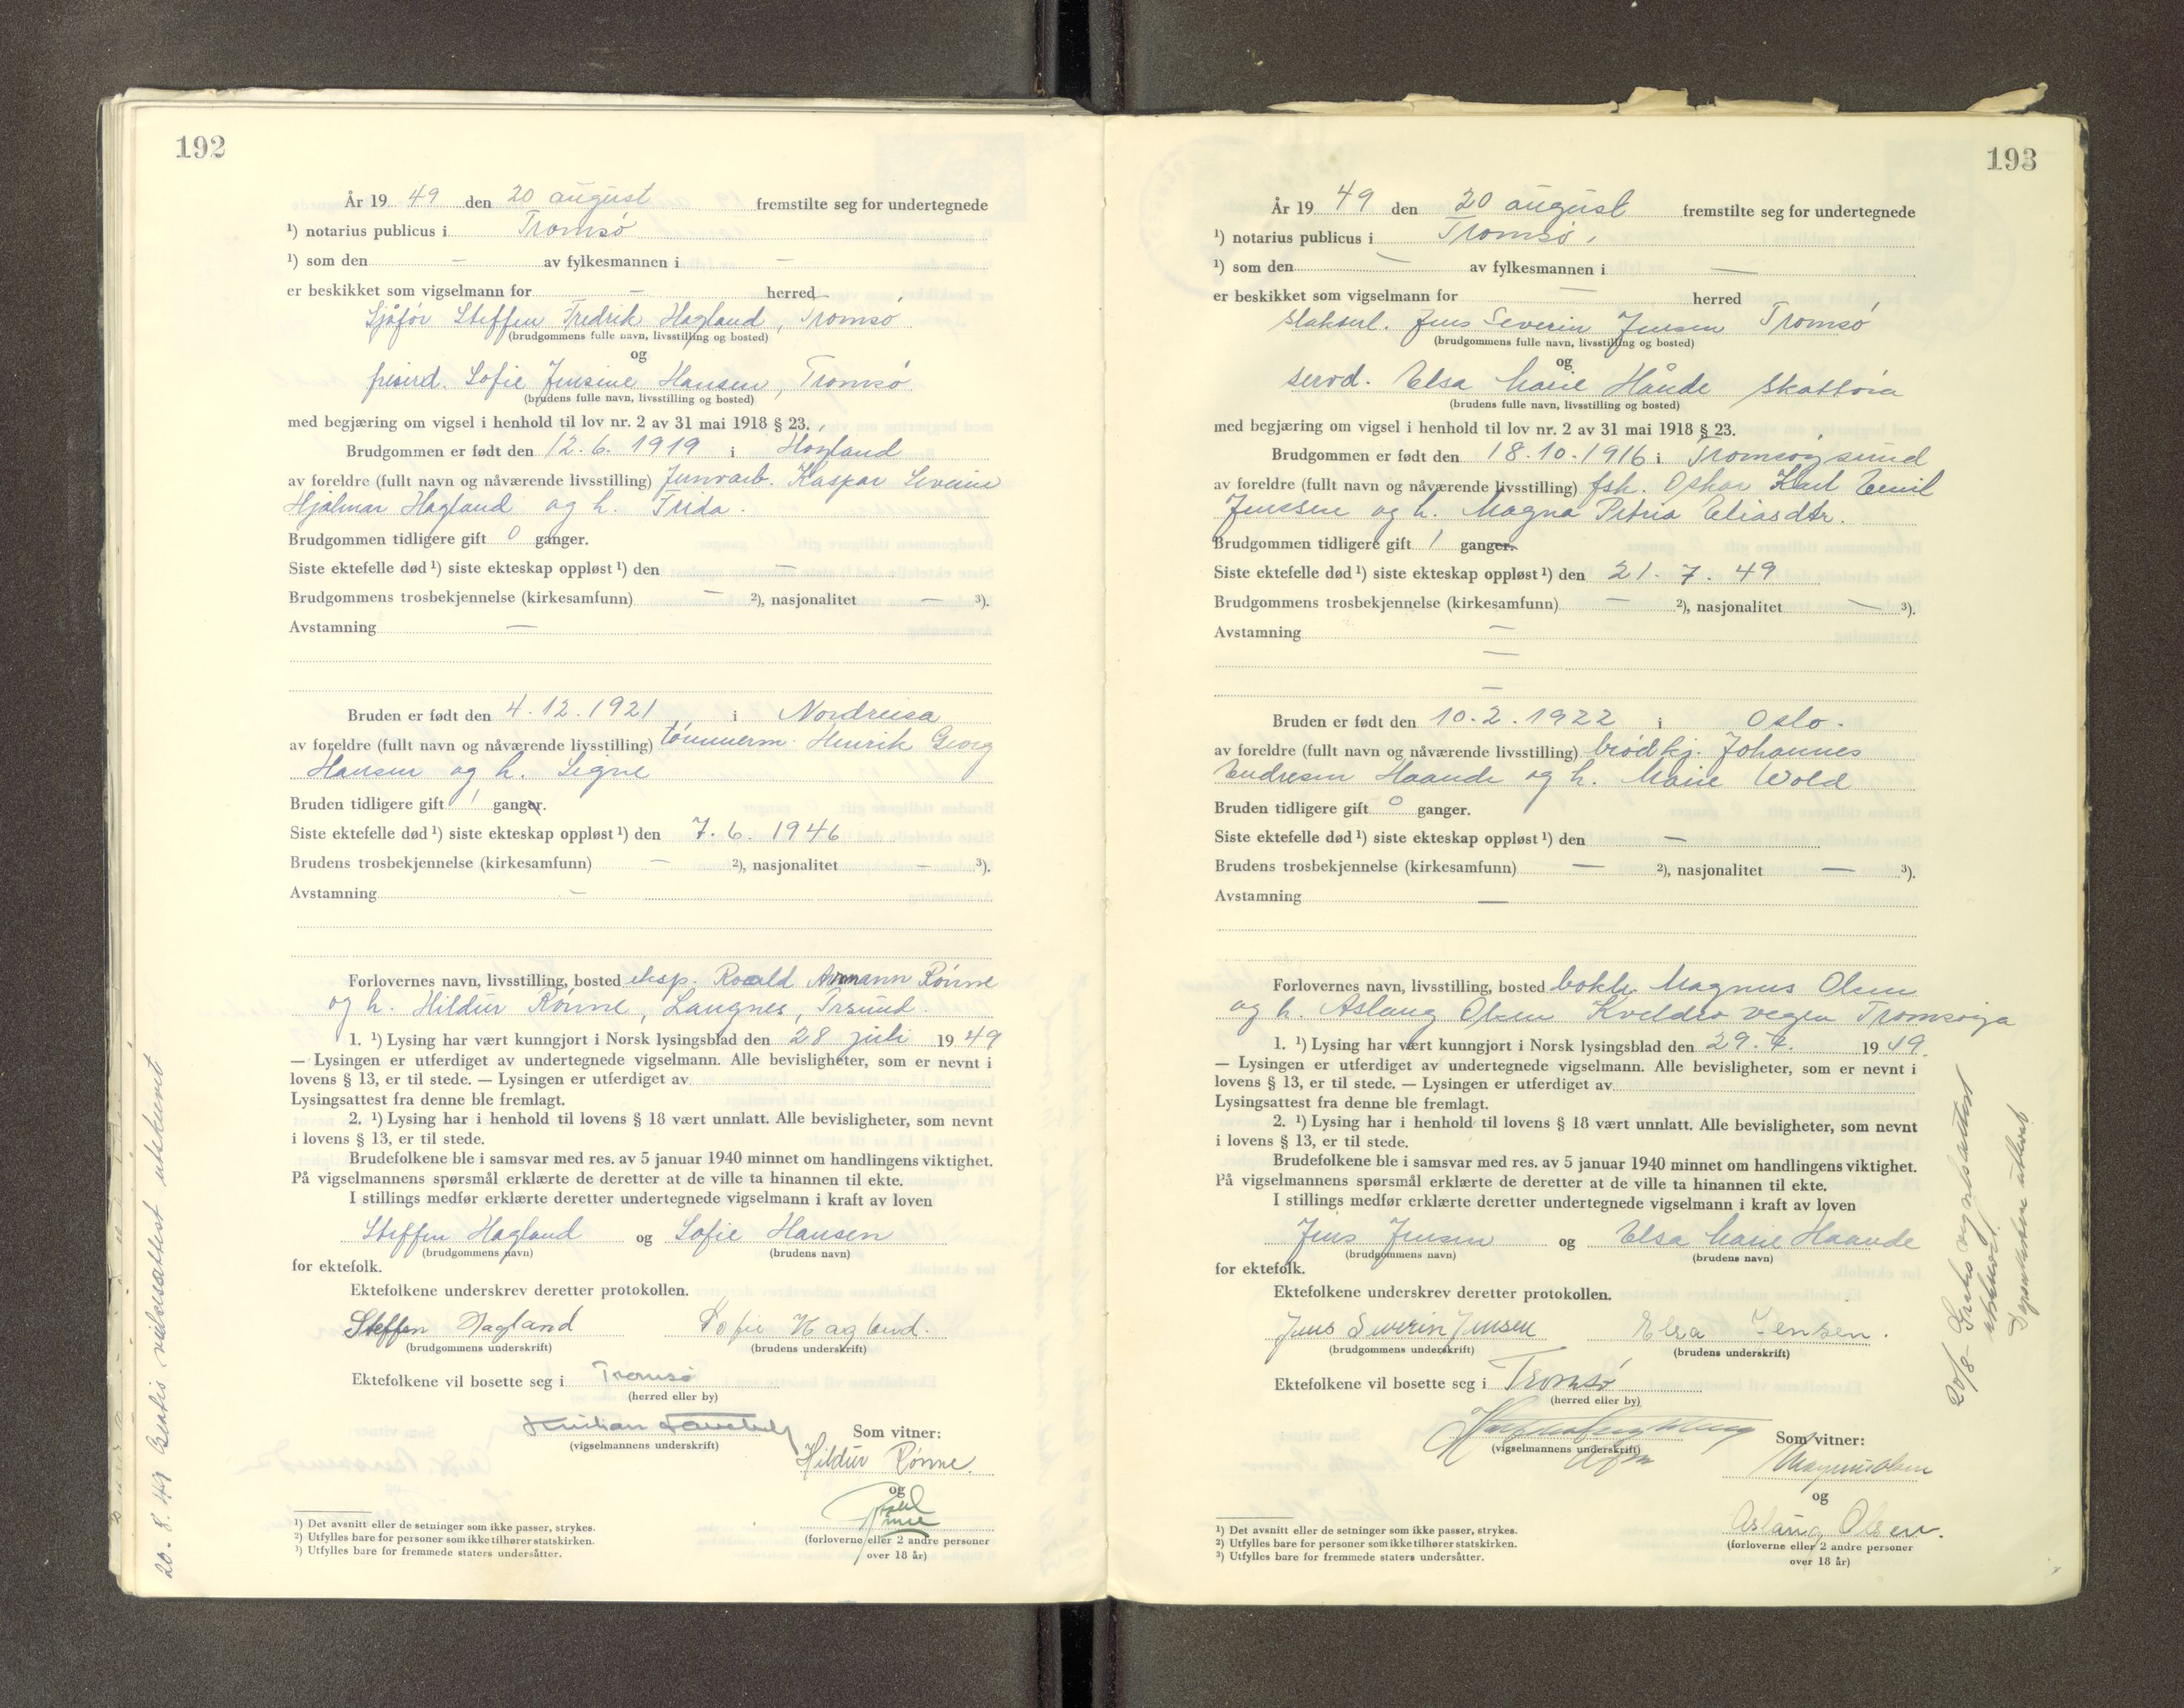 192
År 19 49 den 20 august fremstilte seg for undertegnede
¹) notarius publicus i Tromsø
¹) som den — av fylkesmannen i —
er beskikket som vigselmann for — herred
Sjåfør Steffen Fredrik Hagland, Tromsø
(brudgommens fulle navn, livsstilling og bosted)
og
Sofie Jensine Hansen, Tromsø
(brudens fulle navn, livsstilling og bosted)
med begjæring om vigsel i henhold til lov nr. 2 av 31 mai 1918 § 23.
Brudgommen er født den 12.6.1919 i
av foreldre (fullt navn og nåværende livsstilling) Kaspar Severin
Hjalmar Hagland og h. Frida.
Brudgommen tidligere gift 0 ganger.
Siste ektefelle død ¹) siste ekteskap oppløst ¹) den —
Brudgommens trosbekjennelse (kirkesamfunn) — ²), nasjonalitet — ³).
Avstamning —
Bruden er født den 4.12.1921 i Nordreisa
av foreldre (fullt navn og nåværende livsstilling) tømmerm. Henrik Georg
Hansen og h. Signe
Bruden tidligere gift 1 ganger.
Siste ektefelle død ¹) siste ekteskap oppløst ¹) den 7.6.1946
Brudens trosbekjennelse (kirkesamfunn) — ²), nasjonalitet — ³).
Avstamning —
Forlovernes navn, livsstilling, bosted eksp. Roald Rønne
og h. Hildur Rønne, Langnes, Trsund.
1. ¹) Lysing har vært kunngjort i Norsk lysingsblad den 28 juli 19 49
— Lysingen er utferdiget av undertegnede vigselmann. Alle bevisligheter, som er nevnt i
lovens § 13, er til stede. — Lysingen er utferdiget av
Lysingsattest fra denne ble fremlagt.
2. ¹) Lysing har i henhold til lovens § 18 vært unnlatt. Alle bevisligheter, som nevnt
i lovens § 13, er til stede.
Brudefolkene ble i samsvar med res. av 5 januar 1940 minnet om handlingens viktighet.
På vigselmannens spørsmål erklærte de deretter at de ville ta hinannen til ekte.
I stillings medfør erklærte deretter undertegnede vigselmann i kraft av loven
Steffen Hagland og Sofie Hansen
(brudgommens navn) (brudens navn)
for ektefolk.
Ektefolkene underskrev deretter protokollen.
Steffen Hagland Sofie Hagland.
(brudgommens underskrift) (brudens underskrift)
Ektefolkene vil bosette seg i Tromsø
(herred eller by)
(vigselmannens underskrift)
Som vitner:
Hildur Rønne.
og
(forloverne eller 2 andre personer
over 18 år)
¹) Det avsnitt eller de setninger som ikke passer, strykes.
²) Utfylles bare for personer som ikke tilhører statskirken.
³) Utfylles bare for fremmede staters undersåtter.
20-8-49 Gratis vielsesattest utskrevet
193
År 19 49 den 20 august fremstilte seg for undertegnede
¹) notarius publicus i Tromsø,
¹) som den — av fylkesmannen i —
er beskikket som vigselmann for — herred
Jens Severin Jensen Tromsø
(brudgommens fulle navn, livsstilling og bosted)
og
Elsa Marie Hånde Skattøra
(brudens fulle navn, livsstilling og bosted)
med begjæring om vigsel i henhold til lov nr. 2 av 31 mai 1918 § 23.
Brudgommen er født den 18.10.1916 i Tromsøysund
av foreldre (fullt navn og nåværende livsstilling) fsk. Oskar Karl Emil
Jenssen og h. Magna Petria Eliasdtr.
Brudgommen tidligere gift 1 ganger.
Siste ektefelle død ¹) siste ekteskap oppløst ¹) den 21.7.49
Brudgommens trosbekjennelse (kirkesamfunn) — ²), nasjonalitet — ³).
Avstamning —
—
—
Bruden er født den 10.2.1922 i Oslo.
av foreldre (fullt navn og nåværende livsstilling) brødkj. Johannes
Endresen Haande og h. Marie Wold
Bruden tidligere gift 0 ganger.
Siste ektefelle død ¹) siste ekteskap oppløst ¹) den —
Brudens trosbekjennelse (kirkesamfunn) — ²), nasjonalitet — ³).
Avstamning —
Forlovernes navn, livsstilling, bosted bokh. Magnus Olsen
og h. Aslaug Olsen Kveldrovegen Tromsøya
1. ¹) Lysing har vært kunngjort i Norsk lysingsblad den 29.7. 19 49.
— Lysingen er utferdiget av undertegnede vigselmann. Alle bevisligheter, som er nevnt i
lovens § 13, er til stede. — Lysingen er utferdiget av
Lysingsattest fra denne ble fremlagt.
2. ¹) Lysing har i henhold til lovens § 18 vært unnlatt. Alle bevisligheter, som nevnt
i lovens § 13, er til stede.
Brudefolkene ble i samsvar med res. av 5 januar 1940 minnet om handlingens viktighet.
På vigselmannens spørsmål erklærte de deretter at de ville ta hinannen til ekte.
I stillings medfør erklærte deretter undertegnede vigselmann i kraft av loven
Jens Jensen og Elsa Marie Haande
(brudgommens navn) (brudens navn)
for ektefolk.
Ektefolkene underskrev deretter protokollen.
Jens Severin Jensen Elsa Jensen.
(brudgommens underskrift) (brudens underskrift)
Ektefolkene vil bosette seg i Tromsø
(herred eller by)
(vigselmannens underskrift)
Som vitner:
Magnus Olsen
og
Aslaug Olsen.
(forloverne eller 2 andre personer
over 18 år)
¹) Det avsnitt eller de setninger som ikke passer, strykes.
²) Utfylles bare for personer som ikke tilhører statskirken.
³) Utfylles bare for fremmede staters undersåtter.
20/8- Gratis vigselsattest
utskrevet.